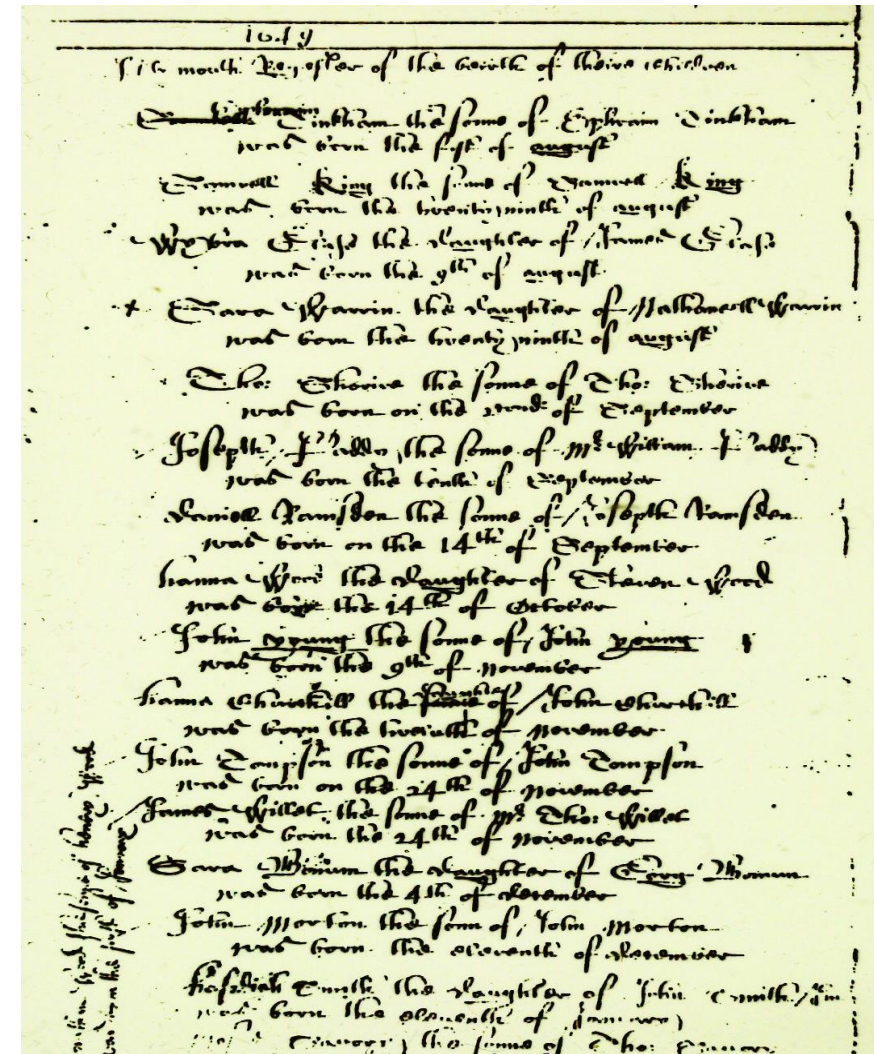 1649
Plymouth Register of the beirth of theire Children
Beniamin Tinkham the sonne of Ephraim Tinkham
was born the first of august
Samuell King the sonne of Samuell King
was born the twenty ninth of august
the daughter of James
was born the 9th of august
Sara Warrin the daughter of Nathaneell Warrin
was born the twenty ninth of august
Tho: Shrive the sonne of Tho: Shrive
was born on the 2cond of September
Joseph Paddy the sonne of Mr William Paddy
was born the tenth of September
Daniell Ramsden the sonne of Joseph Ramsden
was born on the 14th of September
hanna Wood the daughter of Steven Wood
was born the 14th of October
John young the sonne of John young
was born the 9th of November
hanna Churchill the daughter of John Churchill
was born the of November
John Tompson the sonne of John Tompson
was born on the 24th of November
James Willet the sonne of Mr Tho: Willet
was born the 24th of November
Sara the daughter of Gorg
was born the 4th of december
John Morton the sonn of John Morton
was born the eleventh of december
Smith the daughter of John Smith
was born the eleventh of January
the sonne of Tho:
the sonne of henery Wood
was born the first of January